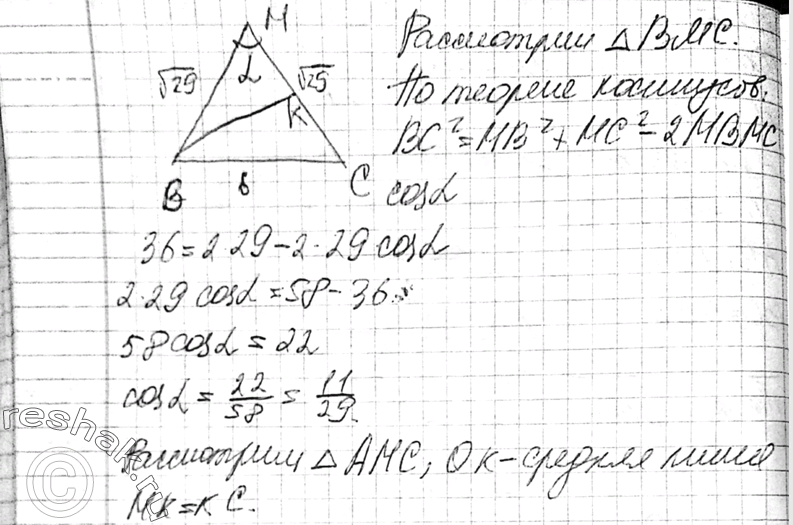 M
√29
α
√29
K
B
6
C
Рассмотрим △ BMC.
По теореме косинусов:
BC² = MB² + MC² - 2MBMC
cosα
36 = 2·29 - 2·29 cosα
2·29 cosα = 58 - 36
58 cosα = 22
cosα = 22/58 = 11/29.
Рассмотрим △ AMC, OK - средняя линия
MK = KC.
reshak.ru
©